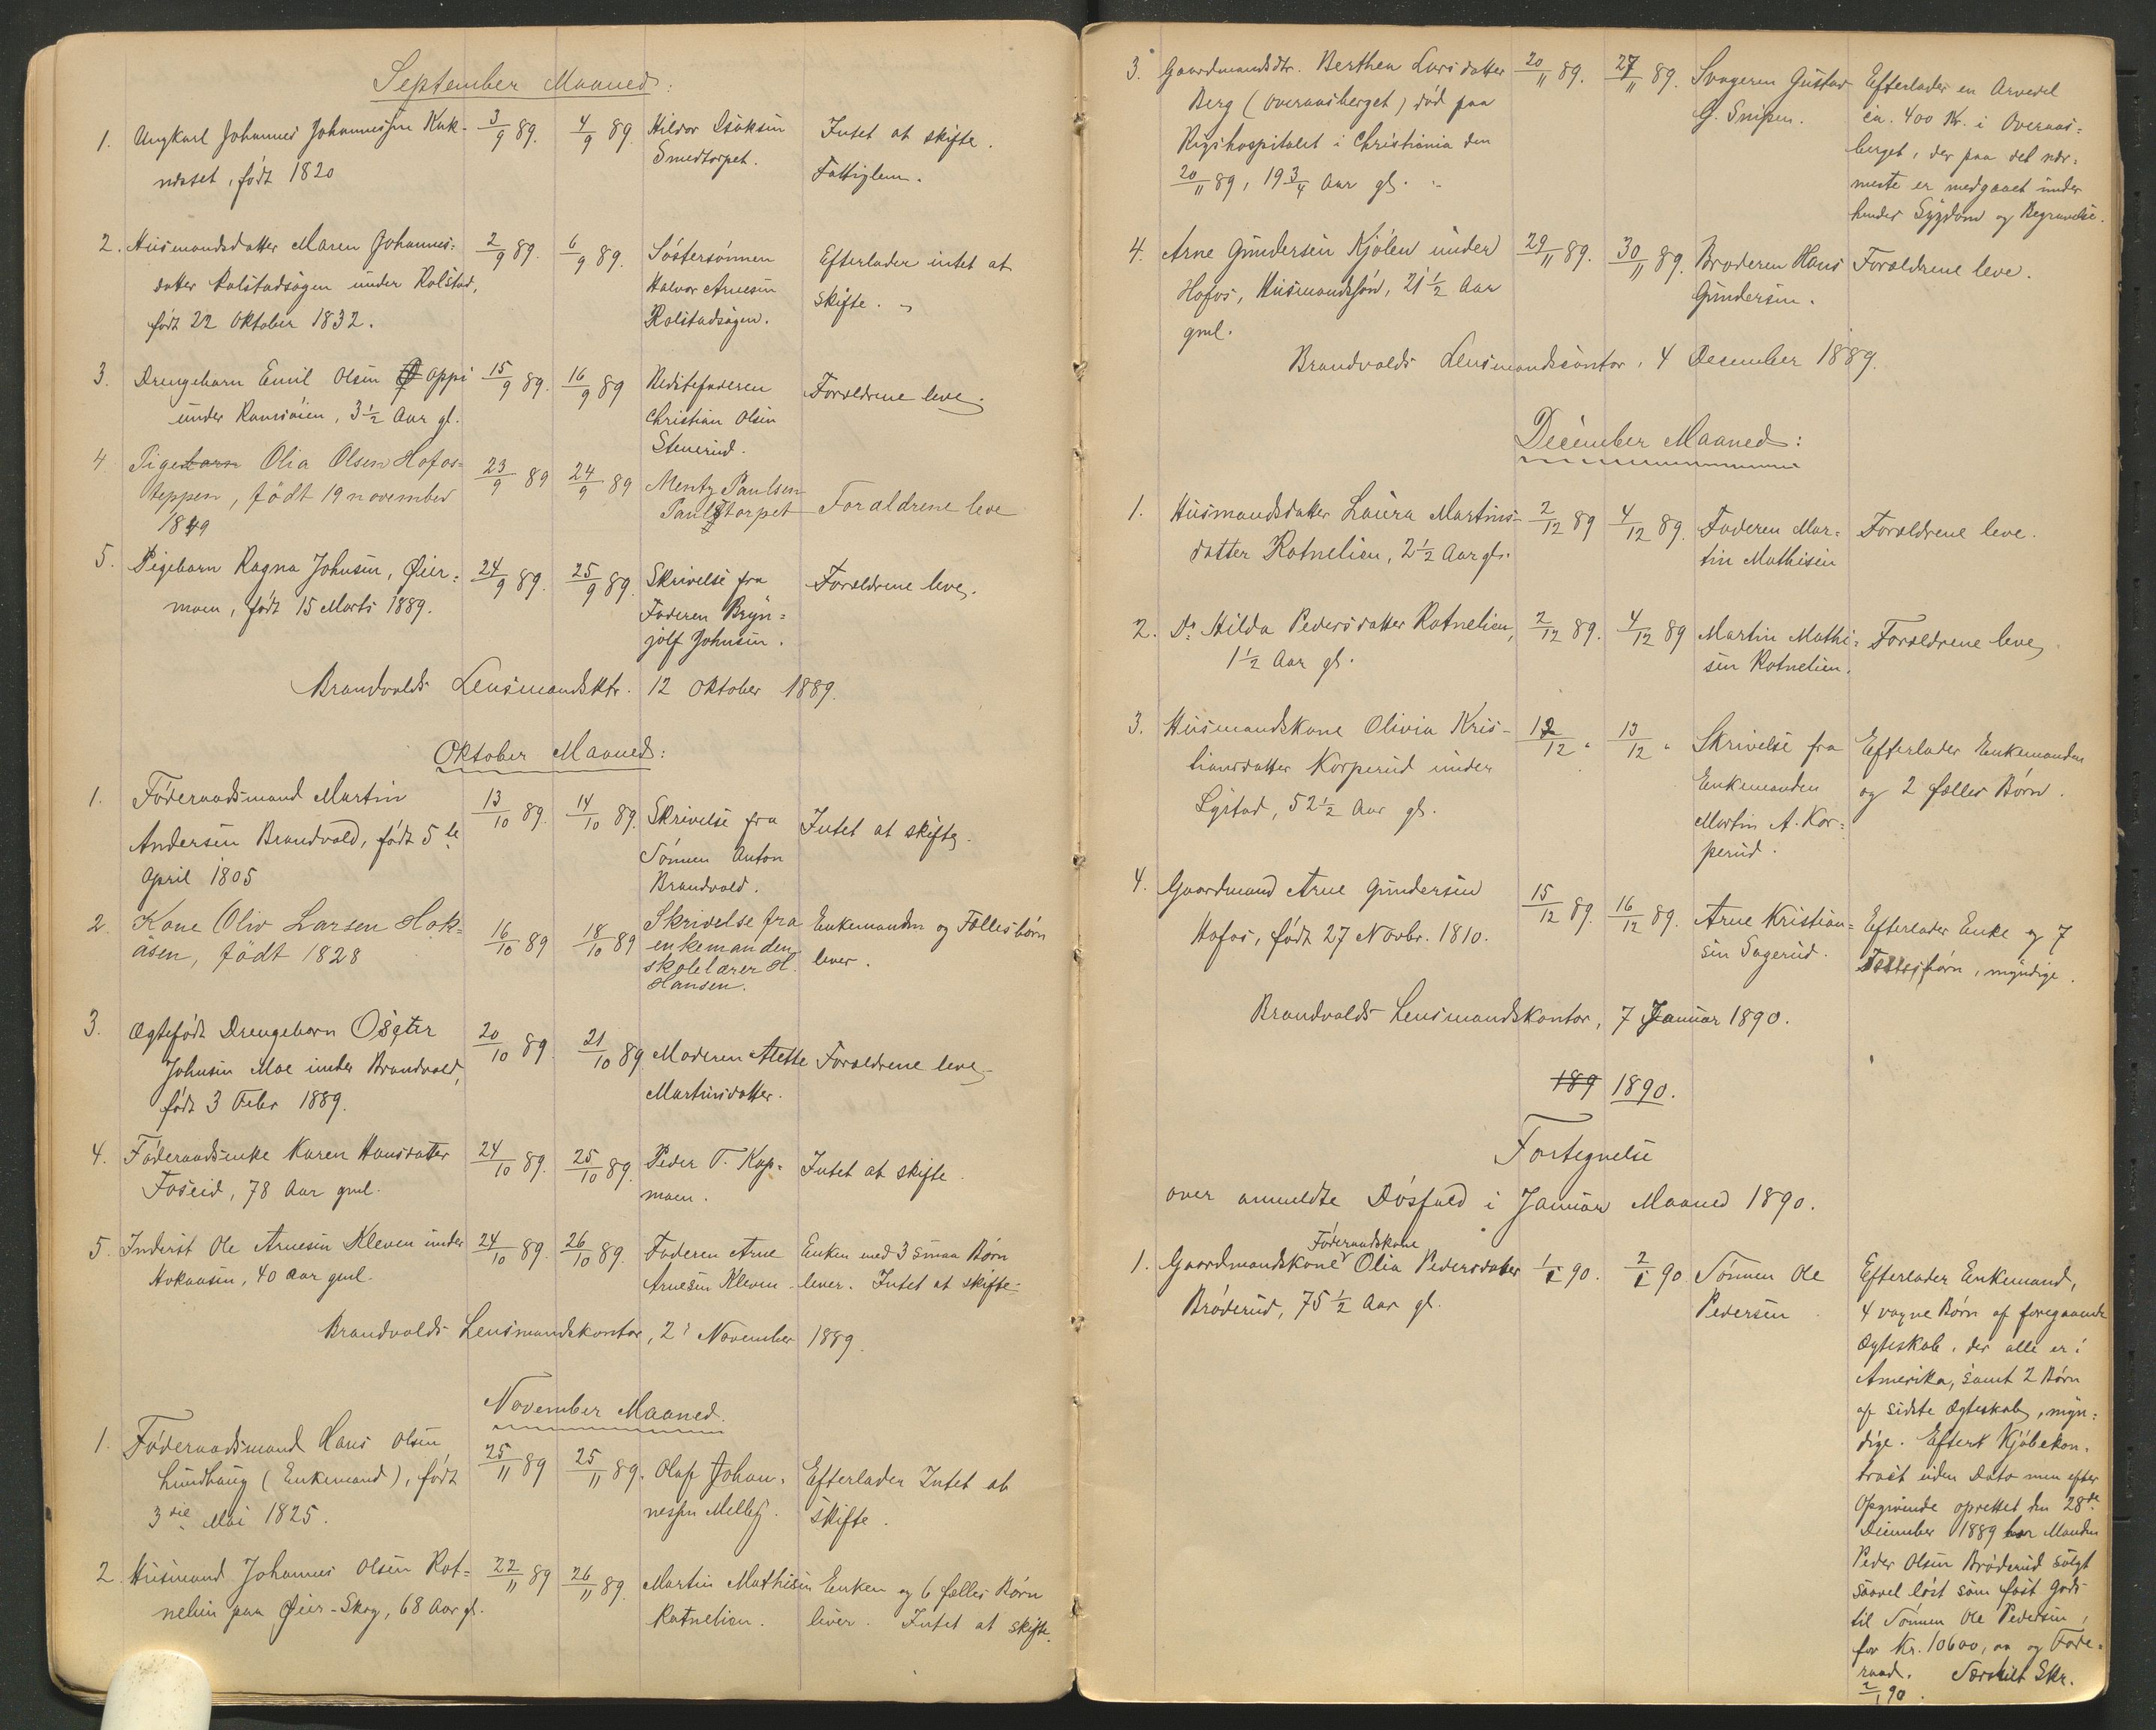 September Maaned:
1. Ungkarl Johannes Johannessen Kuk- 3/9 89. 4/9 89. Hilvor Isaksen Intet at skifte.
næset, født 1820 Smedtorpet. Fattiglem.
2. Husmandsdatter Maren Johannes= 2/9 89. 6/9 89. Søstersønnen Efterlader intet at
datter Rolstadsagen under Rolstad, Halvor Arnesen skifte.
født 22 Oktober 1832. Rolstadsagen.
3. Drengebarn Emil Olsen Oppi 15/9 89. 16/9 89 Stedfaderen Forældrene leve.
under Ramsøien, 3½ Aar gl. Christian Olsen
Stenerud.
4. Pigebarn Olia Olsen Hofos= 23/9 89 24/9 89 Mentz Paulsen Foraldrene leve
teppen, født 19 november Paulstorpet
1849
5. Pigebarn Ragna Johnsen, Øier= 24/9 89. 25/9 89. Skrivelse fra Forældrene leve.
moen, født 15 Marts 1889. Faderen Bryn=
jolf Johnsen.
Brandvolds Lensmandsktr. 12 Oktober 1889.
Oktober Maaned:
1. Føderaadsmand Martin 13/10 89. 14/10 89. Skrivelse fra Intet at skifte.
Andersen Brandvold, født 5te Sønnen Anton
April 1805 Brandvold.
2. Kone Oliv Larsen Hok= 16/10 89 18/10 89 Skrivelse fra Enkemanden og Fællesbørn
åsen, født 1828 enkemanden lever.
skolelærer H.
Hansen.
3. Ægtefødt Drengebarn Osçar 20/10 89. 21/10 89. Moderen Alette Forældrene leve.
Johnsen Moe under Brandvold, Martinsdatter.
født 3 Febr 1889.
4. Føderaadsenke Karen Hansdatter 24/10 89. 25/10 89. Peder T. Kop= Intet at skifte.
Foseid, 78 Aar gml. moen.
5. Inderst Ole Arnesen Kleven under 24/10 89. 26/10 89. Faderen Arne Enken med 3 smaa Børn
Hokaasen, 40 Aar gml. Arnesen Kleven lever. Intet at skifte
Brandvolds Lensmandskontor, 2' November 1889.
November Maaned.
1. Føderaadsmand Hans Olsen 25/11 89 25/11 89. Olaf Johan= Efterlader Intet at
Lundhaug (Enkemand), født nessen Melby. skifte.
3die Mai 1825.
2. Husmand Johannes Olsen Rot= 22/11 89 26/11 89. Martin Mathisen Enken og 6 fælles Børn
nelien paa Øier-Skog, 68 Aar gl. Rotnelien. lever. Intet at skifte.
3. Gaardmandsdtr. Berthea Larsdatter 20/11 89. 27/11 89. Svogeren Gustav Efterlader en Arvedel
Berg (Overaasberget) død paa G. Snipen. ca. 400 Kr. i Overaas=
Rigshospitalet i Christiania den berget, der paa det nær=
20/11 89, 19¾ Aar gl. meste er medgaaet under
hendes Sygdom og Begravelse.
4. Arne Gundersen Kjølen under 29/11 89. 30/11 89. Broderen Hans Forældrene leve.
Hofos, Husmandssøn, 21½ Aar Gundersen.
gml.
Brandvolds Lensmandscontor, 4 December 1889.
December Maaned:
1. Husmandsdatter Laura Martins- 2/12 89 4/12 89. Faderen Mar= Forældrene leve.
datter Rotnelien, 2½ Aar gl. tin Mathisen
2. Do Hilda Pedersdatter Rotnelien, 2/12 89. 4/12 89 Martin Mathi= Forældrene leve.
1½ Aar gl. sen Rotnelien.
3. Husmandskone Olivia Kris- 12/12 " 13/12 " Skrivelse fra Efterlader Enkemanden
tiansdatter Korperud under Enkemanden og 2 fælles Børn.
Lystad, 52½ Aar gl. Martin A. Kor=
perud.
4. Gaardmand Arne Gundersen 15/12 89. 16/12 89. Arne Kristian= Efterlader Enke og 7
Hofos, født 27 Novbr. 1810. sen Sagerud. Fællesbørn, myndige.
Brandvolds Lensmandskontor, 7 Januar 1890.
189 1890.
Fortegnelse
over anmeldte Dødsfald i Januar Maaned 1890.
Føderaadskone
1. Gaardmandskone Olia Pedersdatter 1/1 90. 2/1 90 Sønnen Ole Efterlader Enkemand,
Brøderud, 75½ Aar gl. Pedersen 4 voxne Børn af foregaaende
Ægteskab, der alle er i
Amerika, samt 2 Børn
af sidste Ægteskab, myn=
dige. Efter Kjøbekon=
tract uden Dato men efter
Opgivende oprettet den 28de
December 1889 har Manden
Peder Olsen Brøderud solgt
saavel løst som fast Gods
til Sønnen Ole Pedersen,
for Kr. 10600,00 og Føde=
raad. Særskilt Skr.
2/1 90.